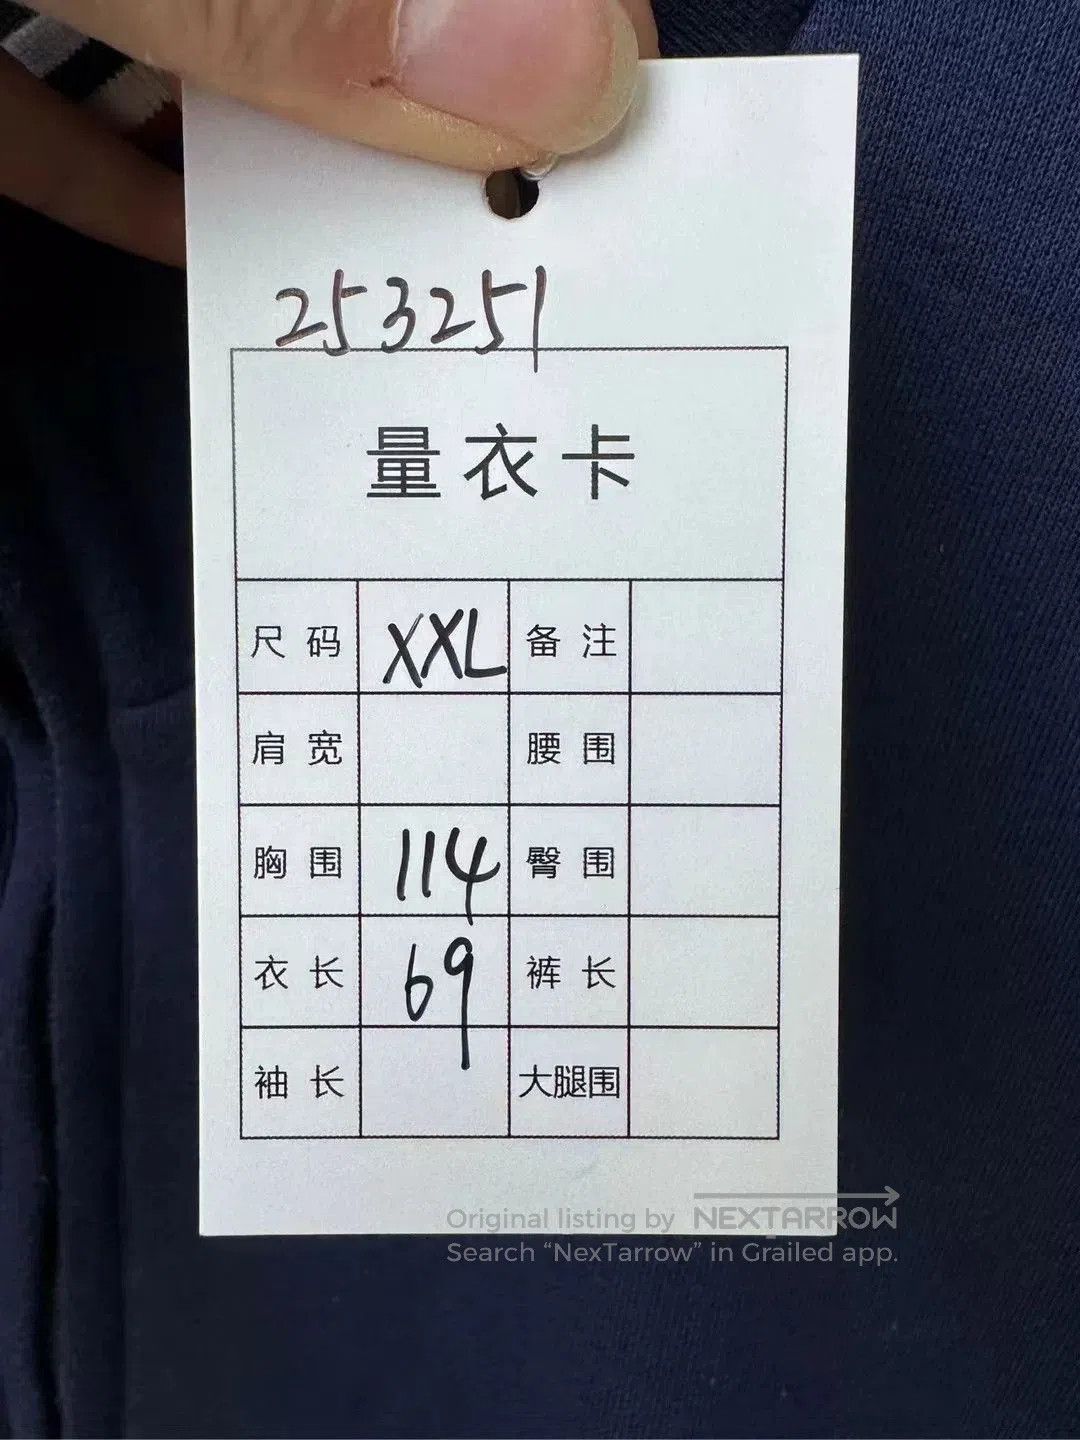 253251
量衣卡
尺码 XXL 备注
肩宽 腰围
胸围 114 臀围
衣长 69 裤长
袖长 大腿围
Original listing by NEXTARROW
Search “NexTarrow” in Grailed app.